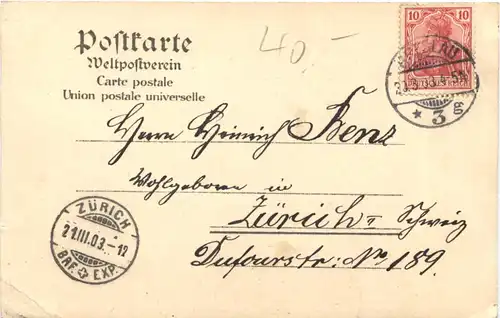 Postkarte
40,-
Weltpostverein
Carte postale
Union postale universelle
10 10
* 3
Herrn Heinrich Benz
Wohlgeboren in
Zürich - Schweiz
Dufourstr: No 189.
ZÜRICH
21.III.03.-12
BRF. EXP.